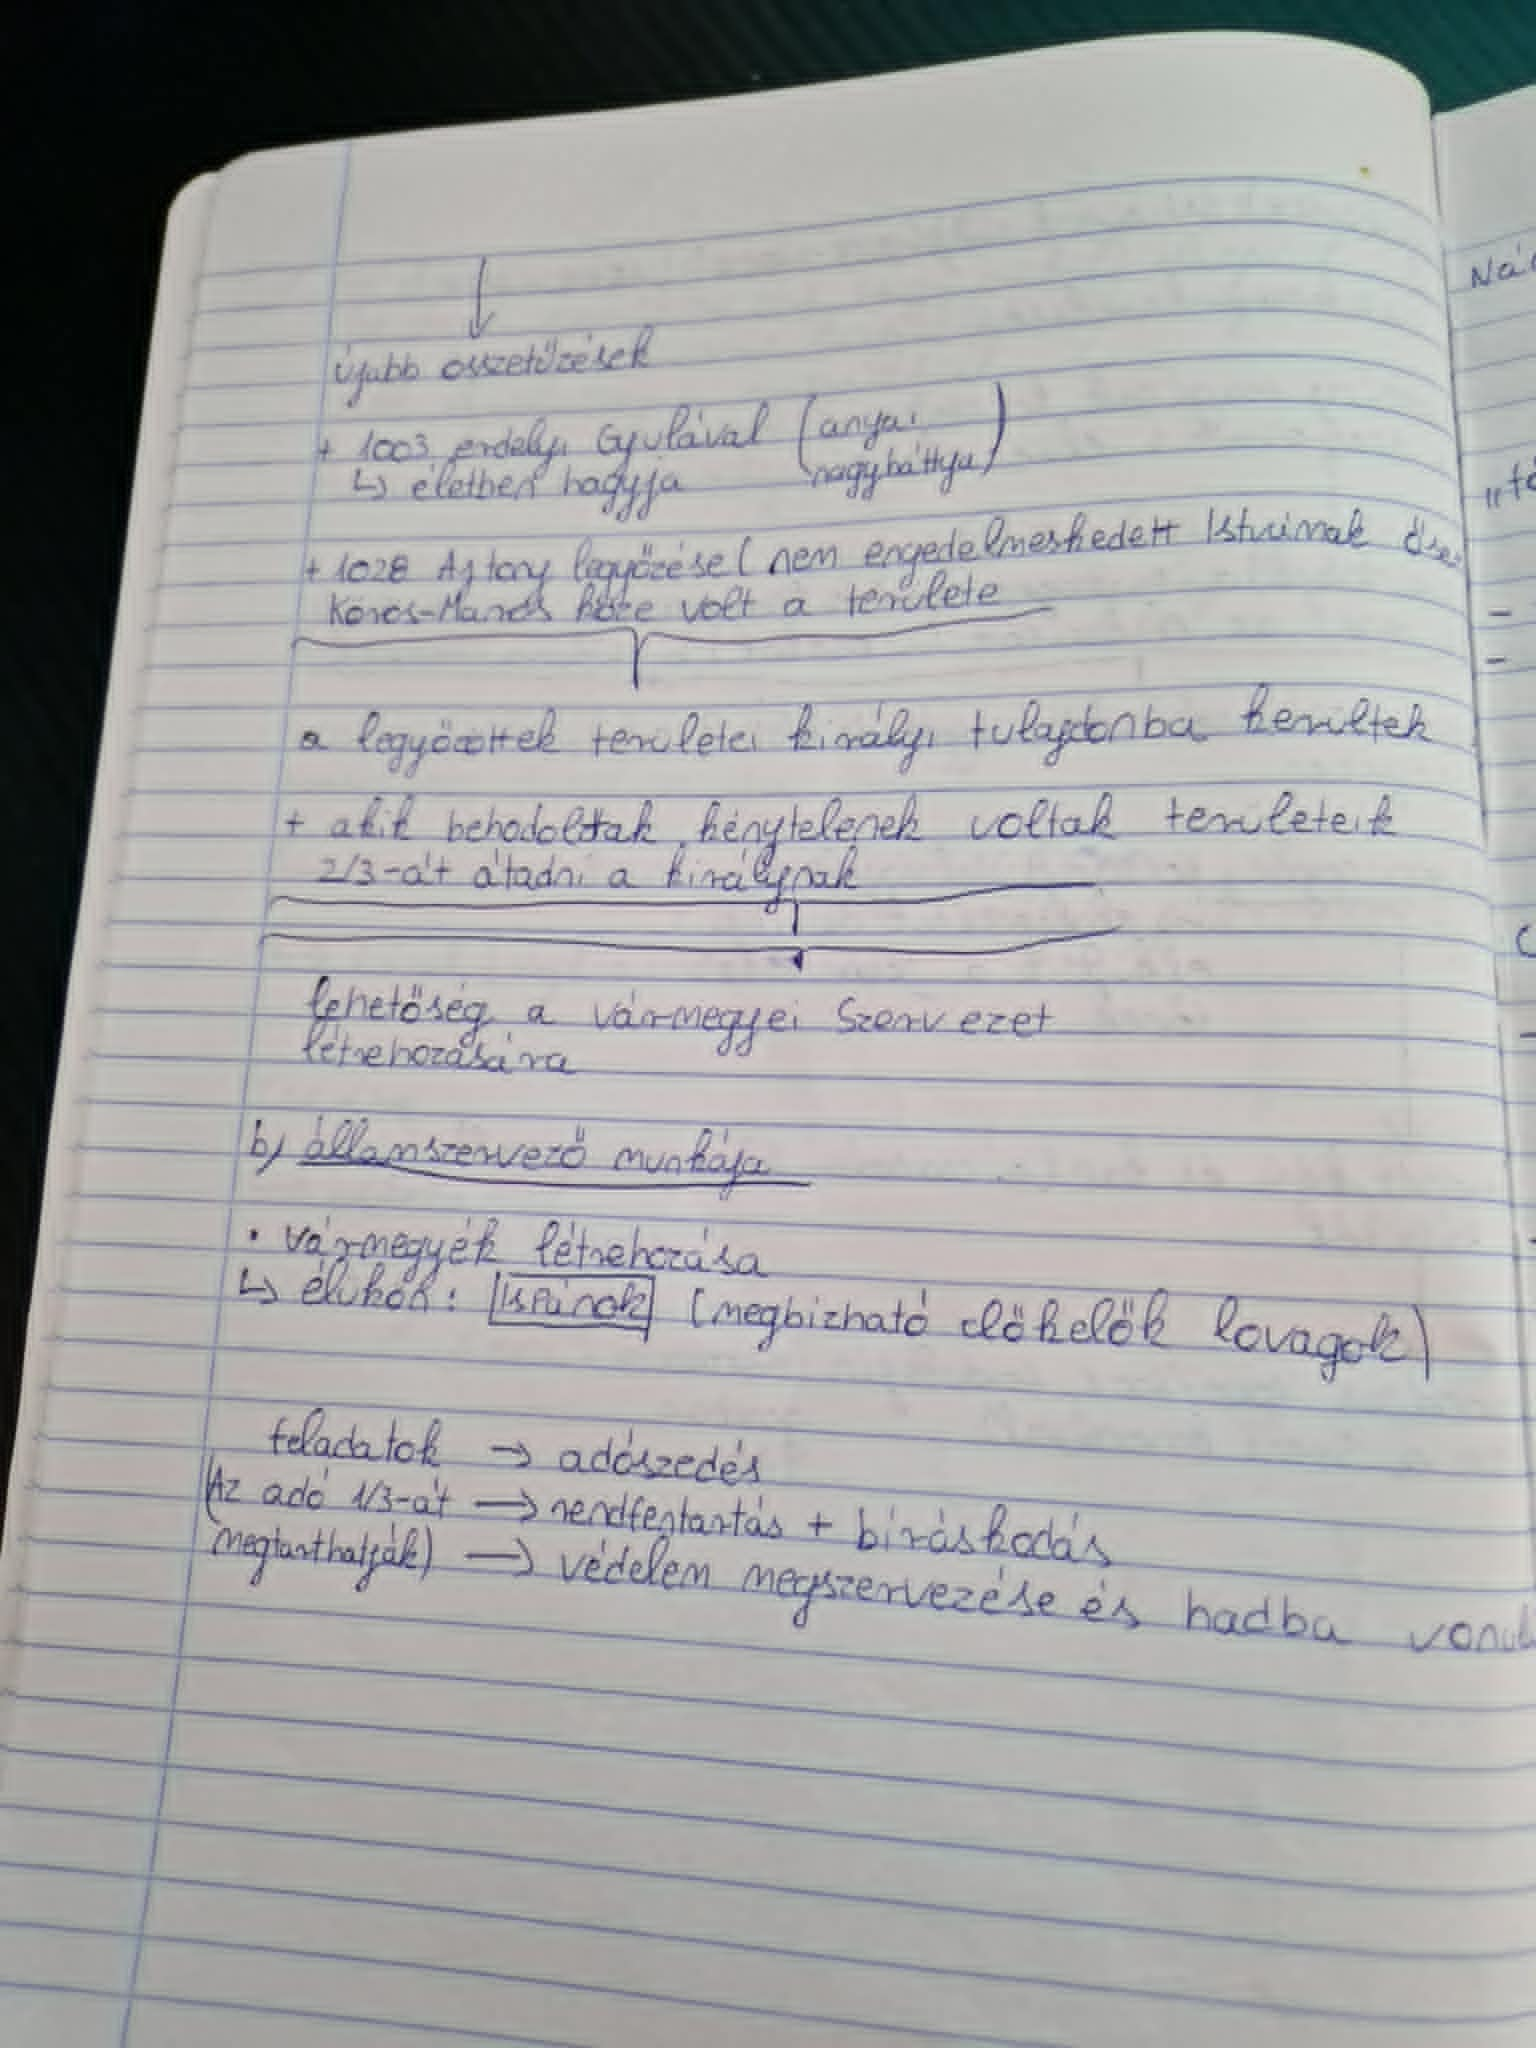 újabb összetűzések
+ 1003 erdélyi Gyulával (anyai
nagybáttya)
↳ életben hagyja
+ 1028 Ajtony legyőzése ( nem engedelmeskedett Istvánnak
Körös-Maros köze volt a területe
a legyőzöttek területei királyi tulajdonba kerültek
+ akik behodoltak kénytelenek voltak területeik
2/3-át átadni a királynak
lehetőség a vármegyei szervezet
létrehozására
b) államszervező munkája
• vármegyék létrehozása
↳ élükön: Ispánok (megbízható előkelők lovagok)
feladatok → adószedés
(Az adó 1/3-át → rendfentartás + bíráskodás
megtarthatják) → védelem megszervezése és hadba